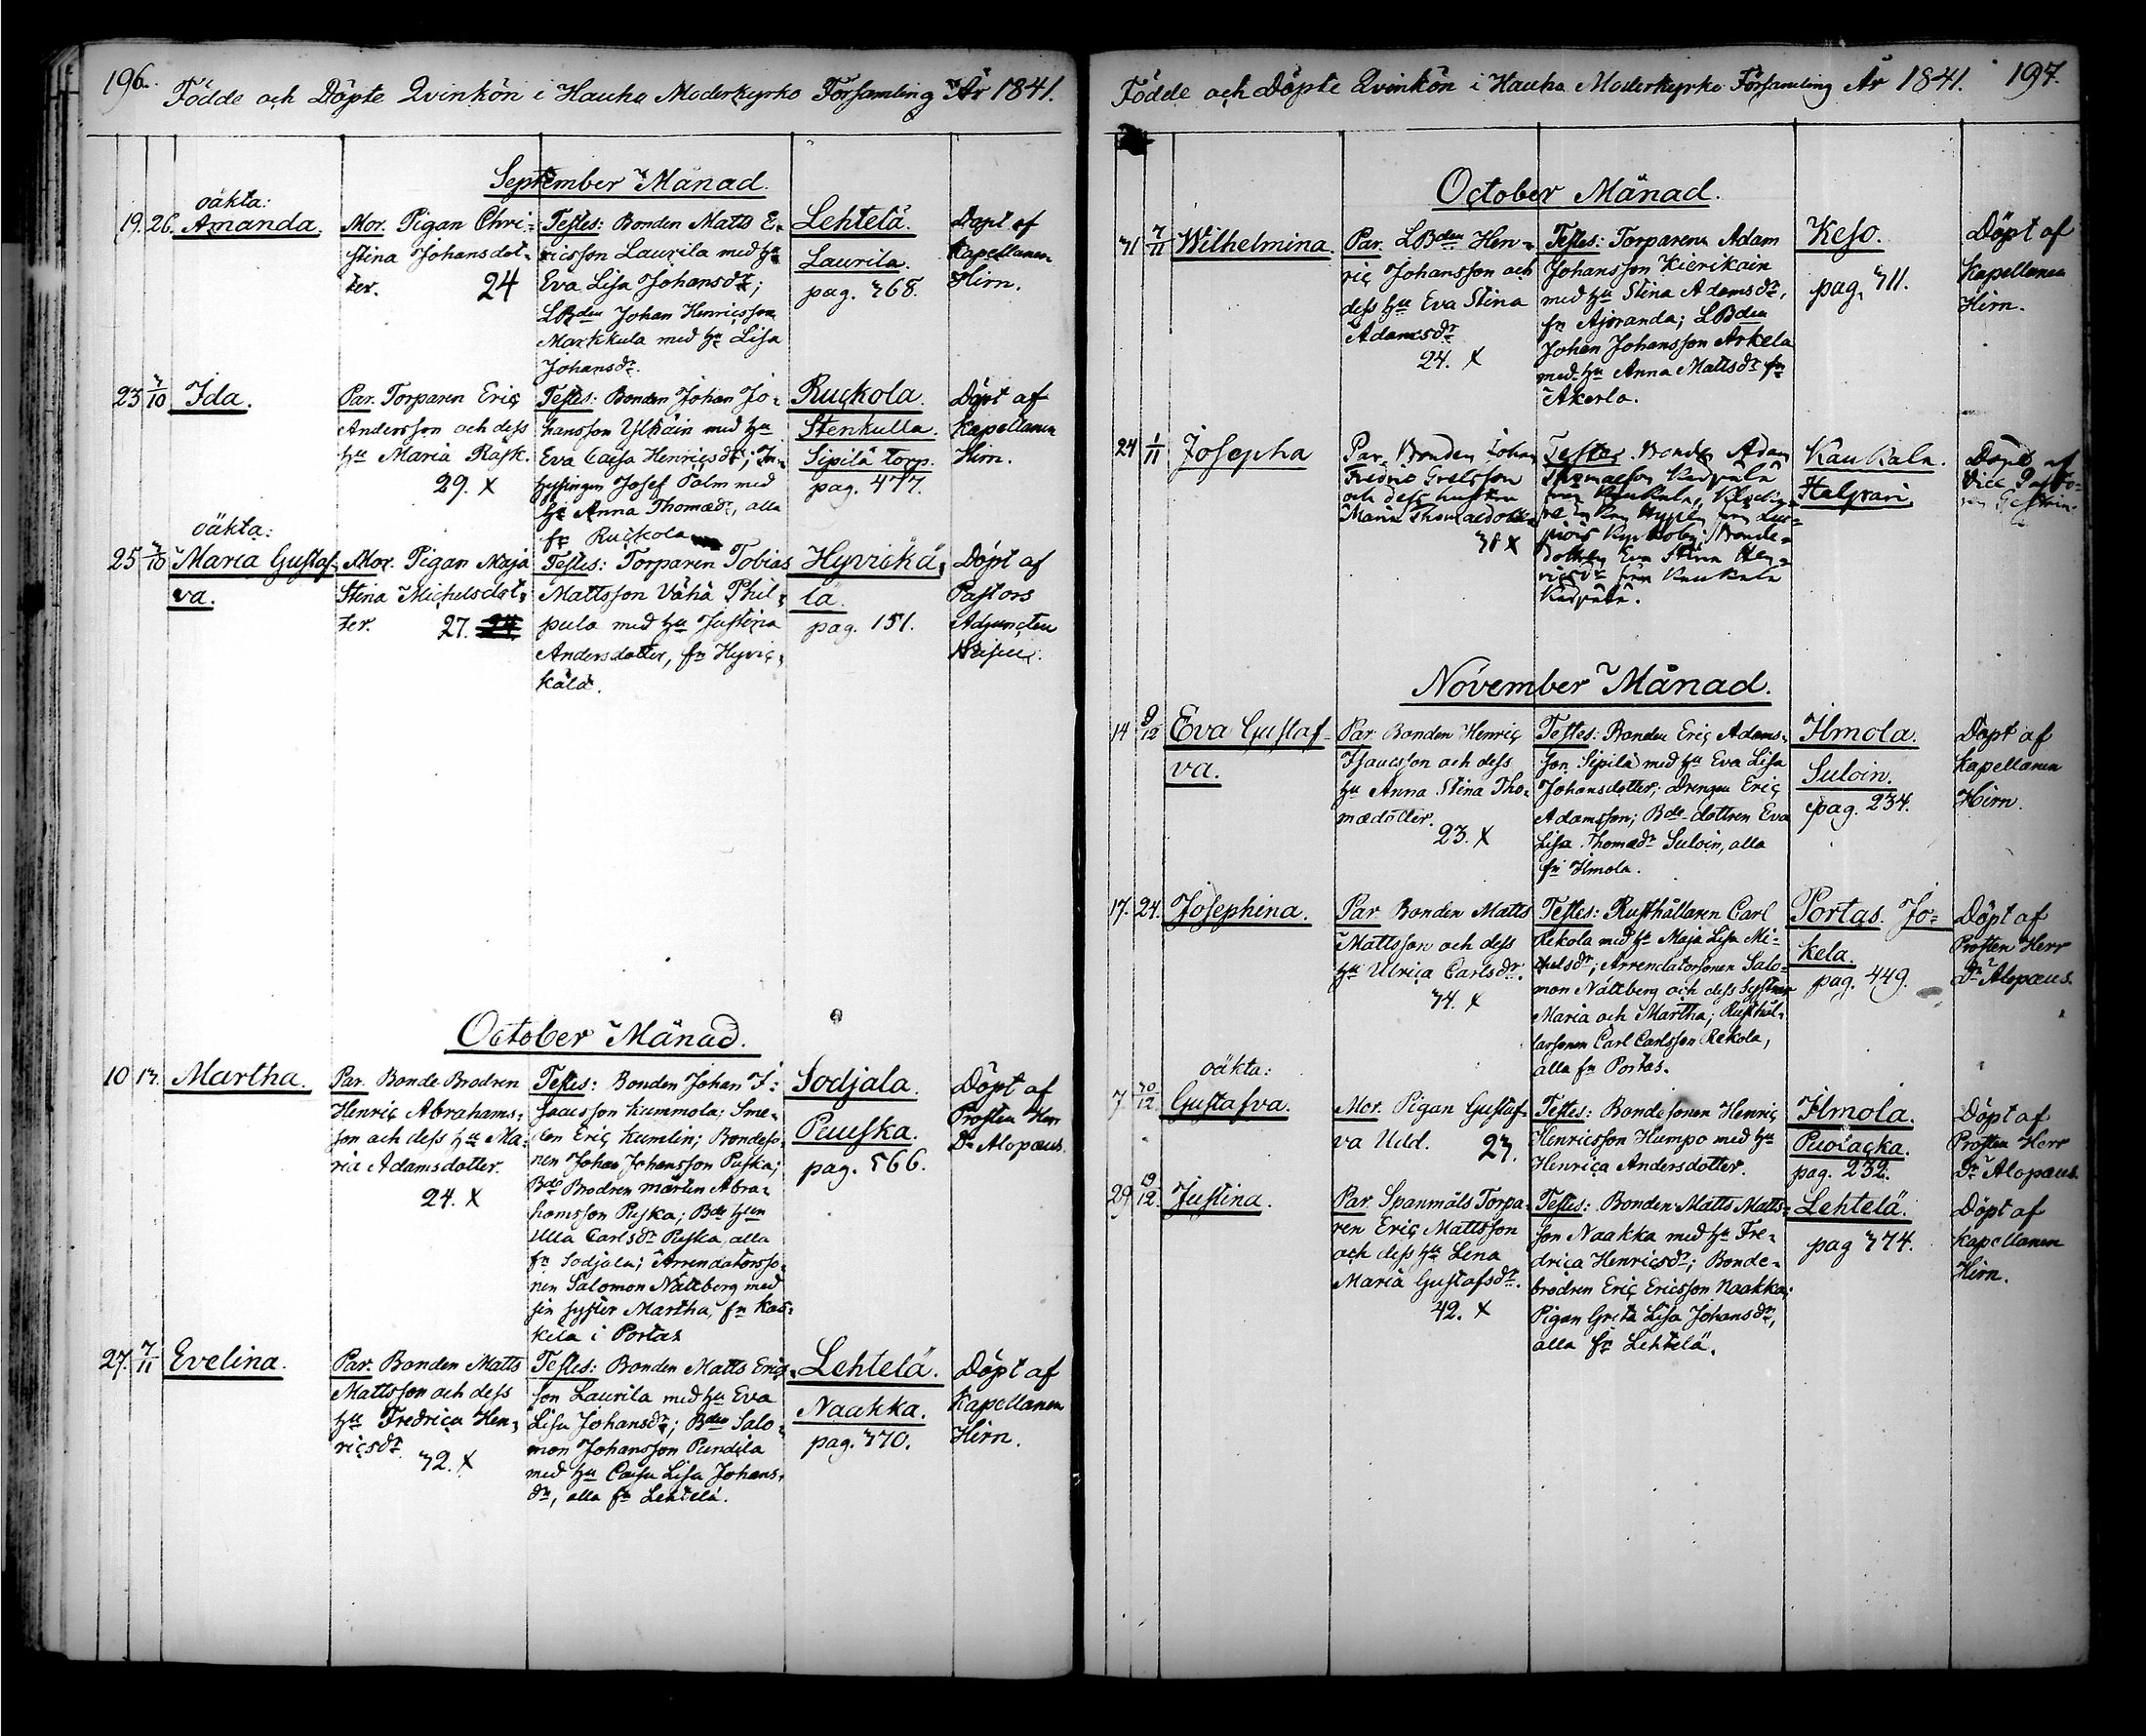 196.
Födde och Döpte Qvinkön i Hauho Moderkyrko Församling År 1841.
September Månad.
oäkta:
19. 26. Amanda.
Mor. Pigan Chri-
stina Johansdot-
ter. 24
Testes: Bonden Matts E-
ricsson Laurila med hu
Eva Lisa Johansdr;
LBden Johan Henricsson
Markkula med hu Lisa
Johansdr.
Lehtelä.
Laurila.
pag. 368.
Döpt af
Kapellanen
Hirn.
23 3/10 Ida.
Par. Torparen Eric
Andersson och dess
hu Maria Rask.
29. x
Testes: Bonden Johan Jo-
hansson Ylhäin med hu
Eva Caisa Henricsdr; In-
hysingen Josef Palm med
hu Anna Thomædr, alla
fr Ruckola
Ruckola.
Stenkulla.
Sipilä torp.
pag. 477.
Döpt af
Kapellanen
Hirn.
oäkta:
25 3/10 Maria Gustaf-
va.
Mor. Pigan Maja
Stina Michelsdot-
ter. 27.
Testes: Torparen Tobias
Mattsson Vähä Phil-
pula med hu Justina
Andersdotter, fr Hyvic-
kälä.
Hyvickä-
lä.
pag. 151.
Döpt af
Pastors
Adjuncten
October Månad.
10 13. Martha.
Par. Bonde Brodren
Henric Abrahams-
son och dess hu Ma-
ria Adamsdotter.
24. x
Testes: Bonden Johan I-
saacsson Kummola; Sme-
den Eric Kumlin; Bondeso-
nen Johan Johansson Puska;
Bde Brodren Mårten Abra-
hamsson Puska; Bde hun
Ulla Carlsdr Puska, alla
fr Sodjala; Arrendatorsso-
nen Salomon Nättberg med
sin syster Martha, fr Kas-
kela i Portas
Sodjala.
Puuska.
pag. 566.
Döpt af
Prosten Herr
Dr Alopæus.
27. 7/11 Evelina.
Par. Bonden Matts
Mattsson och dess
hu Fredrica Hen-
ricsdr
32. x
Testes: Bonden Matts Eric-
son Laurila med hu Eva
Lisa Johansdr; Bden Salo-
mon Johansson Pundila
med hu Caisa Lisa Johans-
dr, alla fr Lehtelä.
Lehtelä.
Naakka.
pag. 370.
Döpt af
Kapellanen
Hirn.
Födde och Döpte Qvinkön i Hauho Moderkyrko Församling År 1841. 197.
October Månad.
31 7/11 Wilhelmina.
Par. LBden Hen-
ric Johansson och
dess hu Eva Stina
Adamsdr
24. x
Testes: Torparen Adam
Johansson Kierikain
med hu Stina Adamsdr,
fr Ajoranda; LBden
Johan Johansson Arkela
med hu Anna Mattsdr fr
Akerla.
Keso.
pag. 311.
Döpt af
Kapellanen
Hirn.
24 1/11 Josepha
Par. Bonden Johan
Fredric
och dess hustru
Maria Thomædotter
38 x
Testes. Bonden Adam
Thomasson
från Kaukala;
dotter Eva Stina Hen-
ricsdr från Kaukala
Kaukala.
Halpari
Döpt af
Vice Pasto-
ren
November Månad.
14 9/12 Eva Gustaf-
va.
Par Bonden Henric
Isaacsson och dess
hu Anna Stina Tho-
mædotter.
23. x
Testes: Bonden Eric Adams-
son Sipilä med hu Eva Lisa
Johansdotter; Drengen Eric
Adamsson; Bde-dottren Eva
Lisa Thomædr Suloin, alla
fr Ilmola.
Ilmola.
Suloin.
pag. 234.
Döpt af
Kapellanen
Hirn.
17. 24. Josephina.
Par. Bonden Matts
Mattsson och dess
hu Ulrica Carlsdr.
34. x
Testes: Rusthållaren Carl
Rekola med hu Maja Lisa Mi-
chelsdr; Arrendatorsonen Salo-
mon Nättberg och dess Systrar
Maria och Martha; Rusthål-
larsonen Carl Carlsson Rekola,
alla fr Portas.
Portas. Jo-
kela.
pag. 449.
Döpt af
Prosten Herr
Dr Alopæus.
oäkta:
7 30/12 Gustafva.
Mor. Pigan Gustaf-
va Udd. 23.
Testes: Bondesonen Henric
Henricsson Humpo med hu
Henrica Andersdotter.
Ilmola.
Puolacka.
pag. 232.
Döpt af
Prosten Herr
Dr Alopæus.
29. 19/12. Justina.
Par. Spanmåls Torpa-
ren Eric Mattsson
och dess hu Lena
Maria Gustafsdr.
42. x
Testes: Bonden Matts Matts-
son Naakka med hu Fre-
drica Henricsdr; Bonde-
brodren Eric Ericsson Naakka;
Pigan Greta Lisa Johansdr,
alla fr Lehtelä.
Lehtelä.
pag 374.
Döpt af
Kapellanen
Hirn.